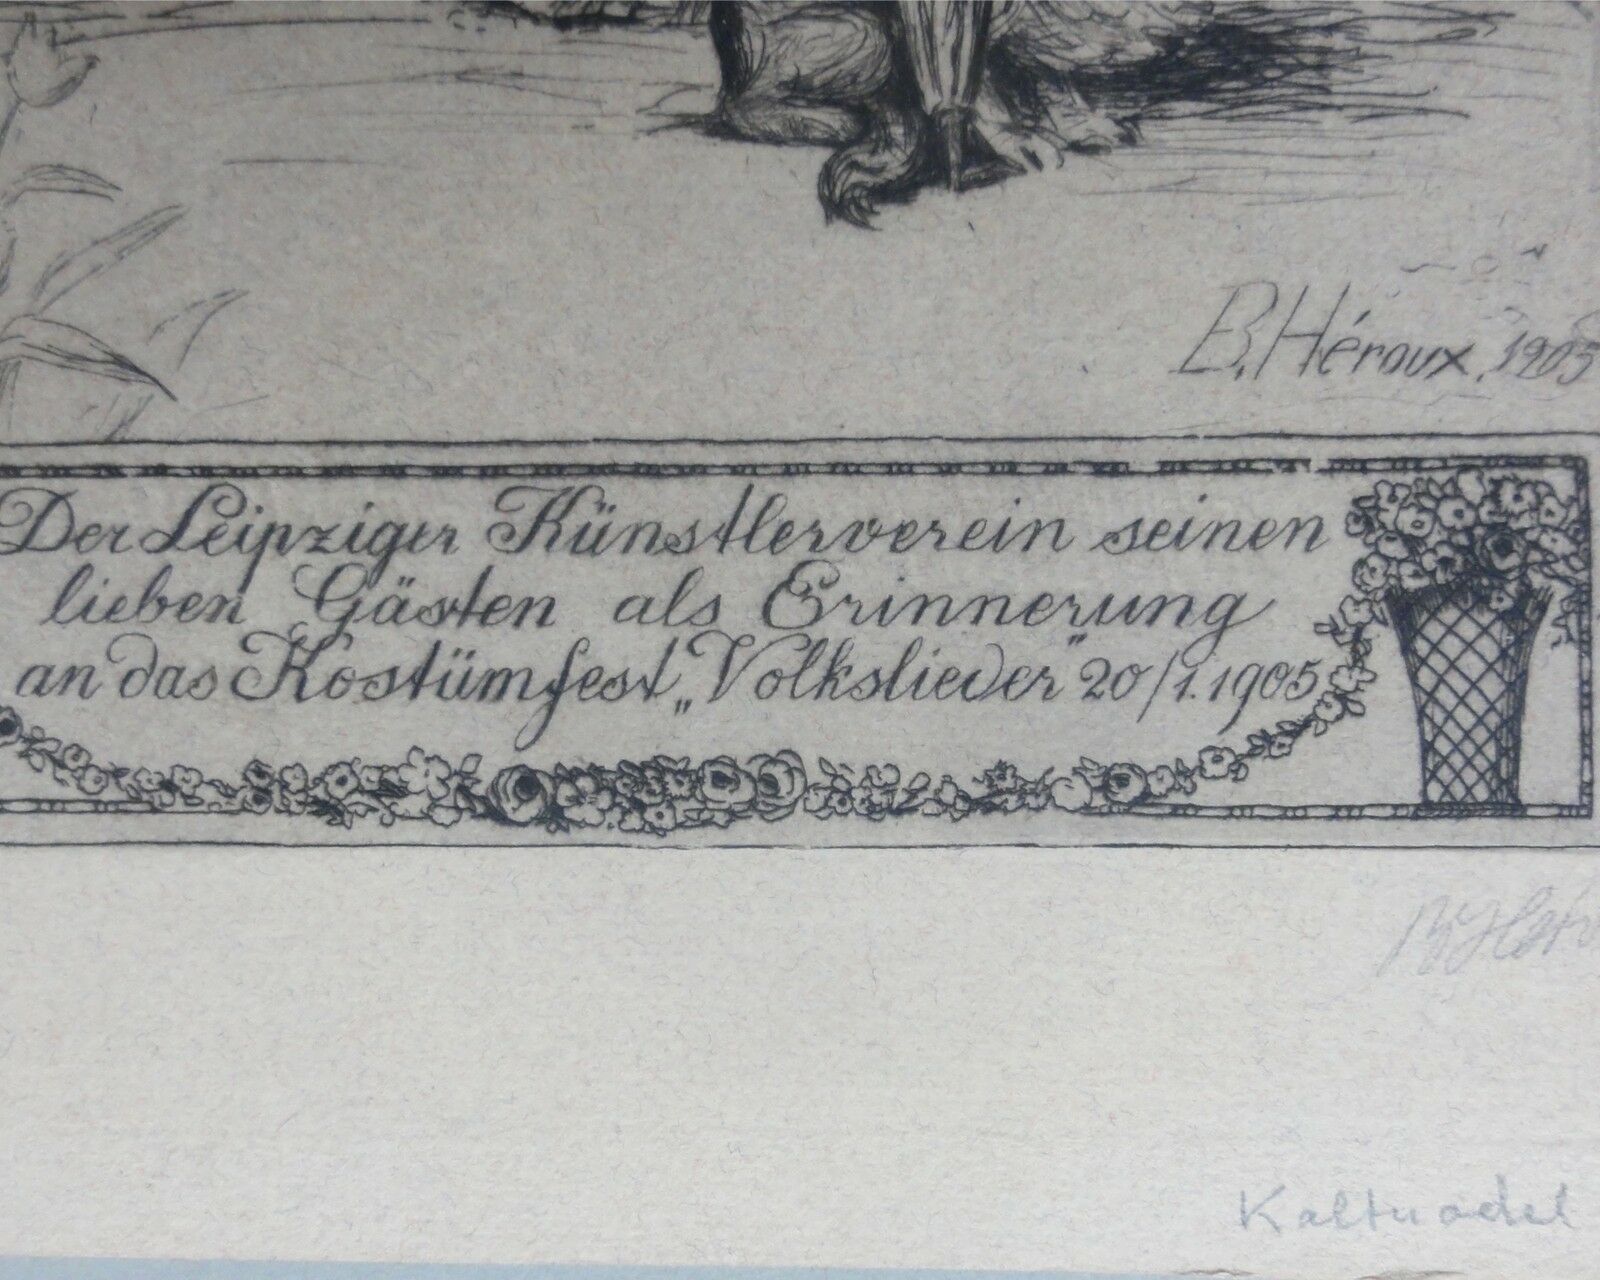 B. Héroux. 1905
Der Leipziger Künstlerverein seinen
lieben Gästen als Erinnerung
an das Kostümfest „Volkslieder" 20/1.1905
Kaltnadel